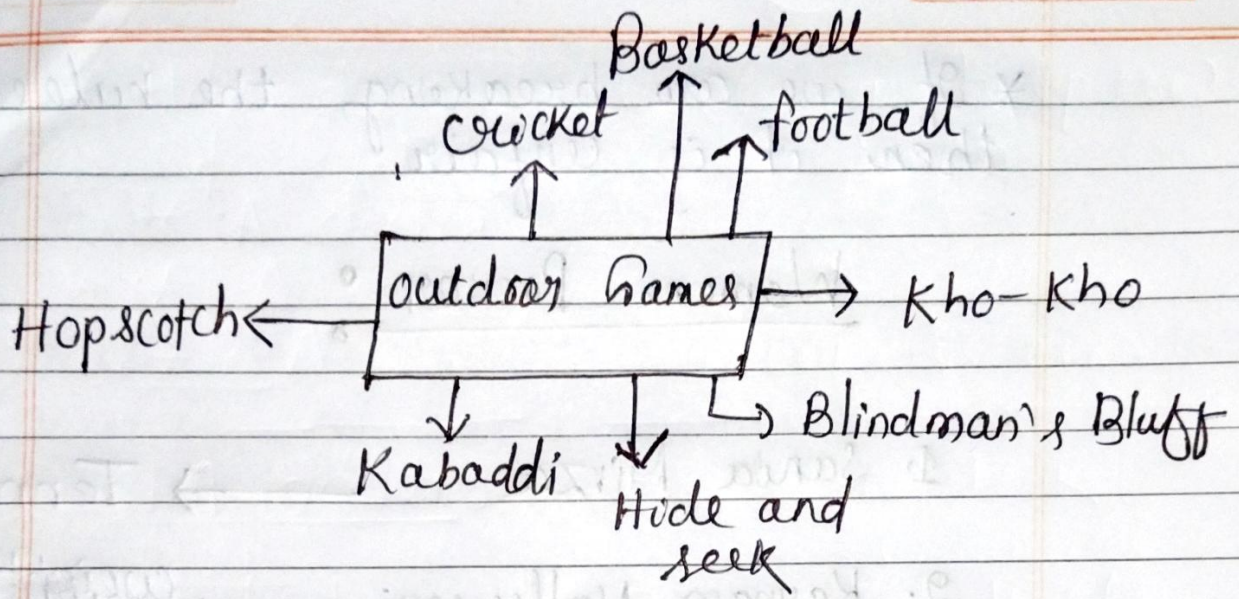 Basketball
cricket
football
outdoor Games
Hopscotch
Kho-Kho
Blindman's Bluff
Kabaddi
Hide and
seek